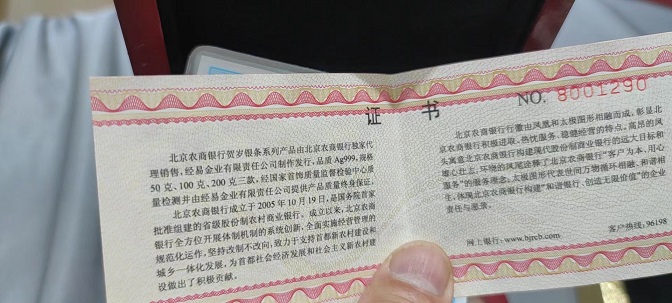 证 书
NO. 8001290
北京农商银行贺岁银条系列产品由北京农商银行独家代
理销售,经易企业有限责任公司制作发行,品质Ag999,规格
50克、100克、200克三款,经国家首饰质量监督检验中心质
量检测并由经易企业有限责任公司提供产品质量终身保证。
北京农商银行成立于2005年10月19日,是国务院首家
批准组建的省级股份制农村商业银行。成立以来,北京农商
银行全方位开展体制机制的系统创新,全面实施经营管理的
规范化运作,坚持改制不改向,致力于支持首都新农村建设和
城乡一体化发展,为首都社会经济发展和社会主义新农村建
设做出了积极贡献。
北京农商银行行徽由凤凰和太极图形相融而成,彰显北
京农商银行积极进取、热忱服务、稳健经营的特点。高昂的凤
头寓意北京农商银行构建现代股份制商业银行的远大目标和
雄心壮志,环绕的凤尾诠释了北京农商银行"客户为本,用心
服务"的服务理念。太极图形代表世间万物循环相融、和谐相
生,体现北京农商银行构建"和谐银行、创造无限价值"的企业
责任与愿景。
网上银行:www.bjrcb.com
客户热线:96198